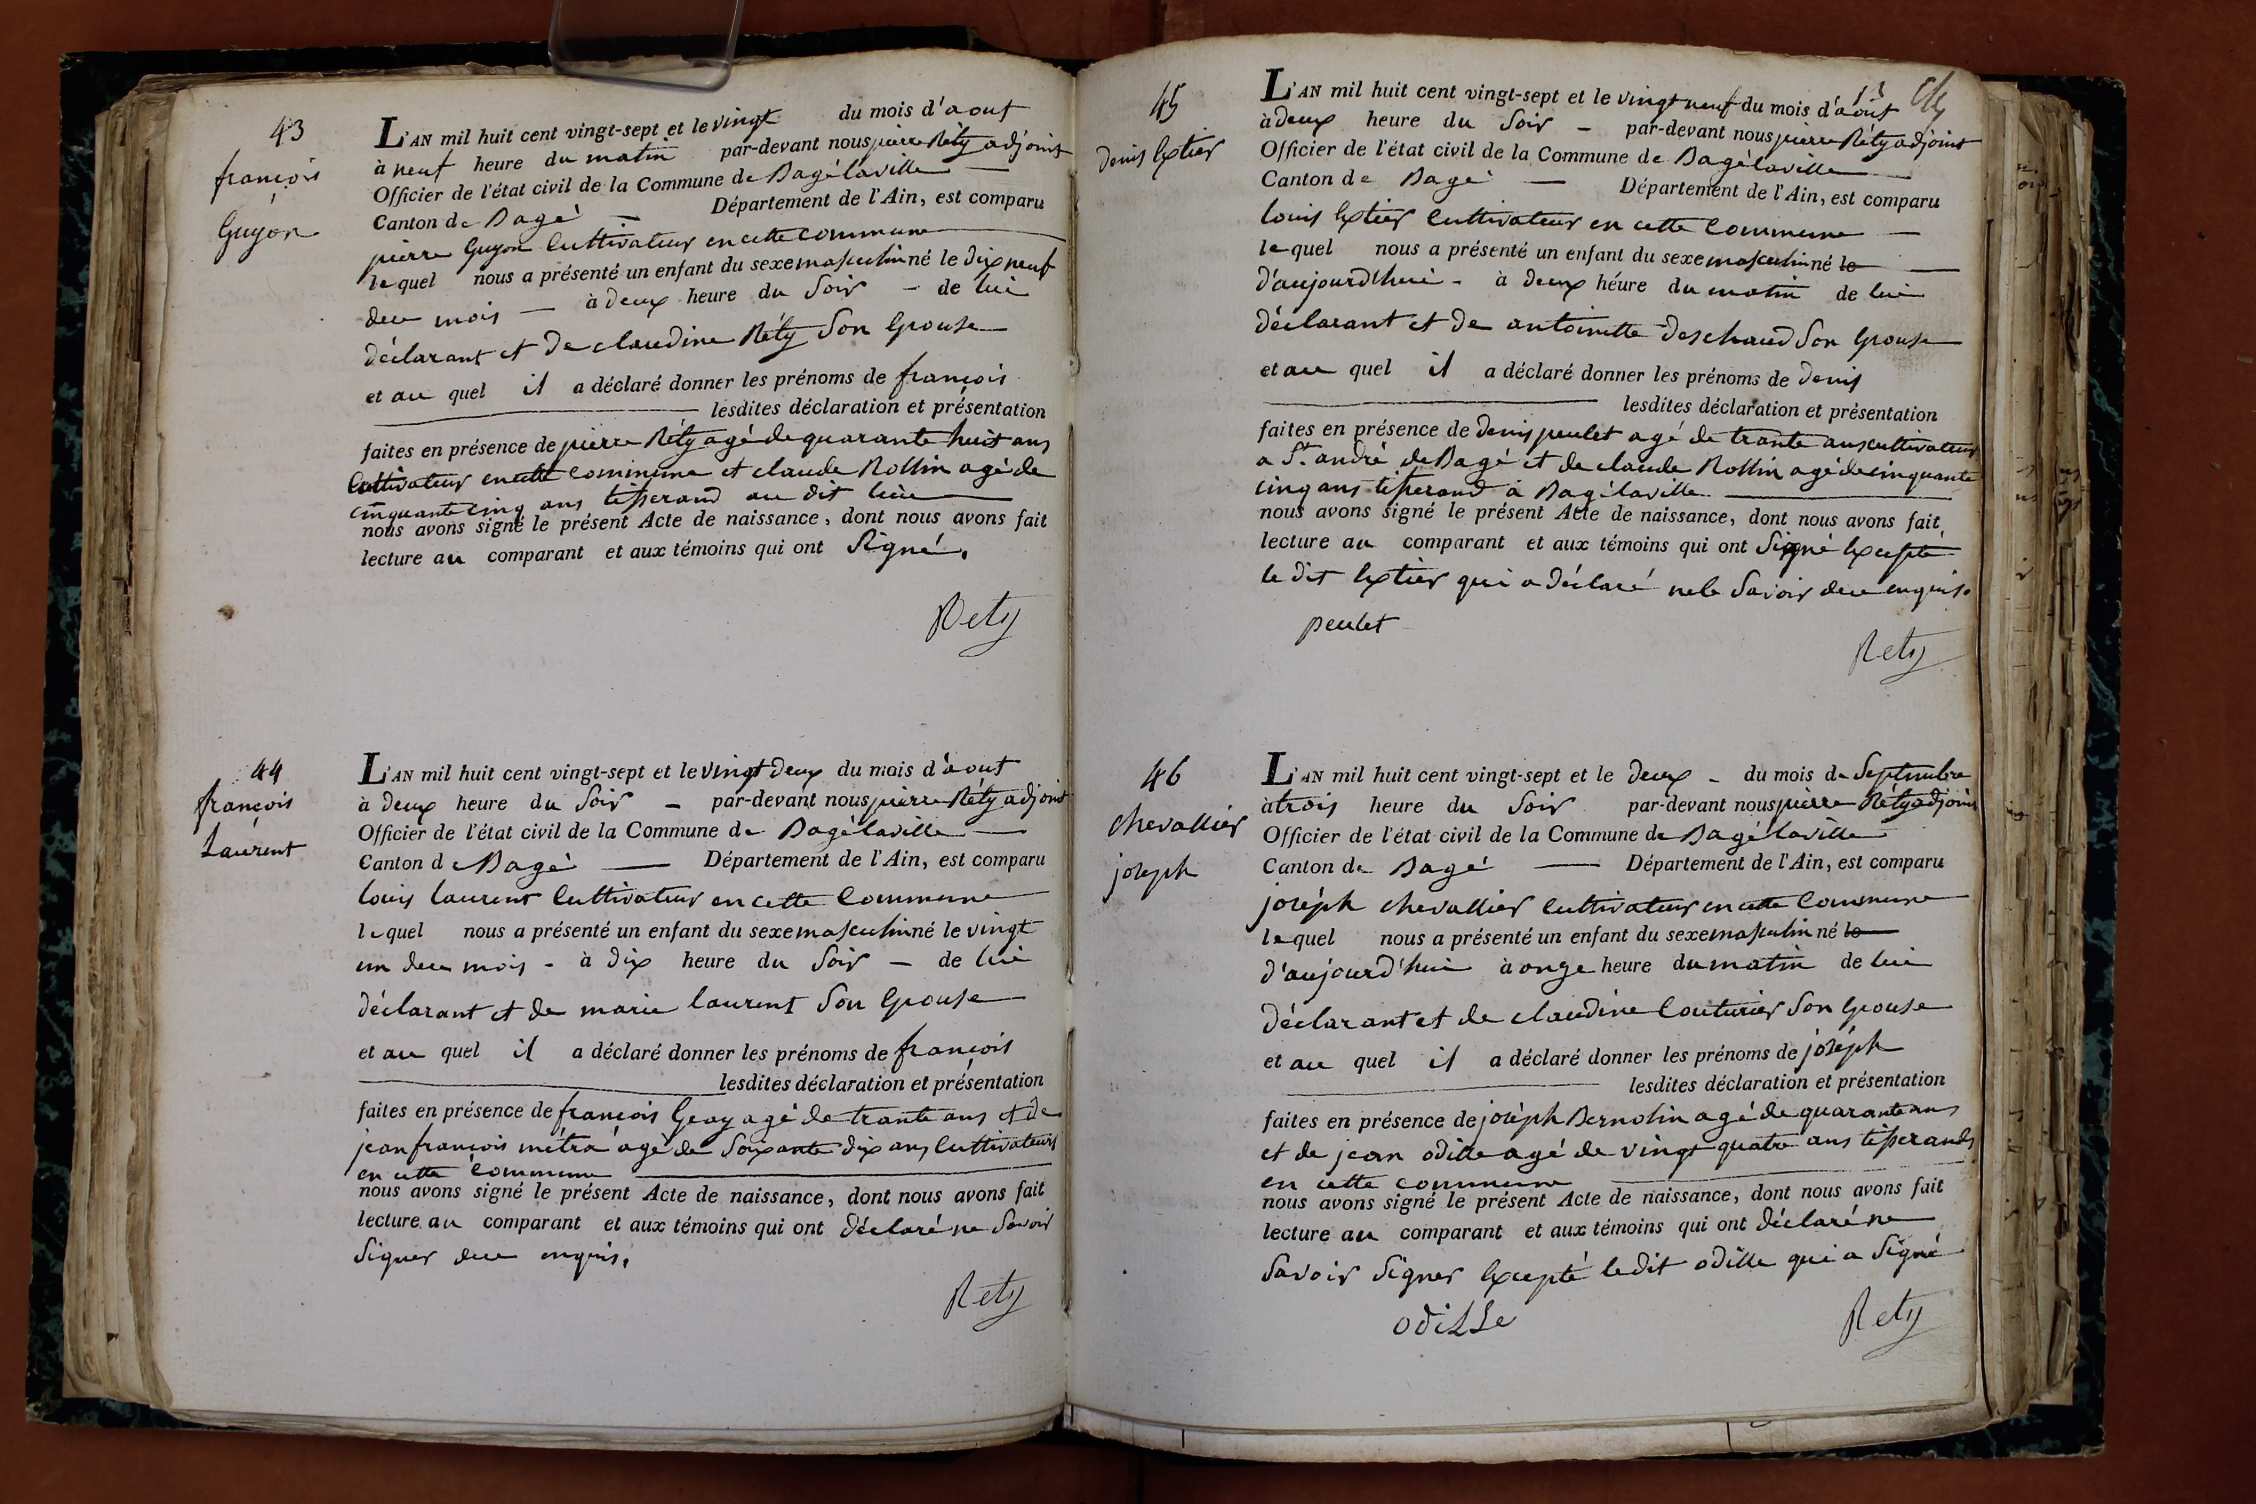 43
françois
Guyon
L'AN mil huit cent vingt-sept et le vingt du mois d'aout
à neuf heure du matin par-devant nous pierre Réty adjoint
Officier de l'état civil de la Commune de Bagélaville
Canton de Bagé — Département de l'Ain, est comparu
pierre Guyon Cultivateur en cette commune
lequel nous a présenté un enfant du sexe masculin né le dix neuf
du mois — à deux heure du Soir — de lui
déclarant et de claudine Réty Son Epouse
et au quel il a déclaré donner les prénoms de françois
lesdites déclaration et présentation
faites en présence de pierre Réty agé de quarante huit ans
Cultivateur en cette commune et claude Rollin agé de
cinquante cinq ans tisserand au dit lieu
nous avons signé le présent Acte de naissance, dont nous avons fait
lecture au comparant et aux témoins qui ont Signé.
Rety
44
françois
Laurent
L'AN mil huit cent vingt-sept et le vingt deux du mois d'aout
à deux heure du Soir — par-devant nous pierre Réty adjoint
Officier de l'état civil de la Commune de Bagélaville —
Canton de Bagé — Département de l'Ain, est comparu
louis laurent Cultivateur en cette Commune
lequel nous a présenté un enfant du sexe masculin né le vingt
un du mois - à dix heure du Soir — de lui
déclarant et de marie laurent Son Epouse
et au quel il a déclaré donner les prénoms de françois
lesdites déclaration et présentation
faites en présence de françois Geay agé de trante ans et de
jean françois métra agé de Soixante dix ans Cultivateurs
en cette Commune
nous avons signé le présent Acte de naissance, dont nous avons fait
lecture au comparant et aux témoins qui ont déclaré ne Savoir
Signer de ce enquis.
Rety
45
denis Extier
L'AN mil huit cent vingt-sept et le vingt neuf du mois d'aout
à deux heure du Soir — par-devant nous pierre Réty adjoint
Officier de l'état civil de la Commune de Bagélaville
Canton de Bagé — Département de l'Ain, est comparu
louis Extier Cultivateur en cette Commune —
lequel nous a présenté un enfant du sexe masculin né le
d'aujourd'hui - à deux héure du matin de lui
déclarant et de antoinette deschaud Son Epouse
et au quel il a déclaré donner les prénoms de denis
lesdites déclaration et présentation
faites en présence de denis peulet agé de trante ans cultivateur
a St. andré de Bagé et de claude Rollin agé de cinquante
cinq ans tisserand à Bagélaville
nous avons signé le présent Acte de naissance, dont nous avons fait
lecture au comparant et aux témoins qui ont Signé Excepté
le dit Extier qui a déclaré ne le Savoir de ce enquis.
peulet
Rety
46
chevallier
joseph
L'AN mil huit cent vingt-sept et le deux - du mois de Septembre
à trois heure du Soir par-devant nous pierre Réty adjoint
Officier de l'état civil de la Commune de Bagélaville
Canton de Bagé — Département de l'Ain, est comparu
joséph chevallier Cultivateur en cette Commune
lequel nous a présenté un enfant du sexe masculin né le
d'aujourd'hui à onze heure du matin de lui
déclarant et de claudine Couturier Son Epouse
et au quel il a déclaré donner les prénoms de joséph
lesdites déclaration et présentation
faites en présence de joséph Bernolin agé de quarante ans
et de jean odille agé de vingt quatre ans tisserands
en cette commune
nous avons signé le présent Acte de naissance, dont nous avons fait
lecture au comparant et aux témoins qui ont déclaré ne
Savoir Signer Excepté ledit odille qui a Signé
odille
Rety